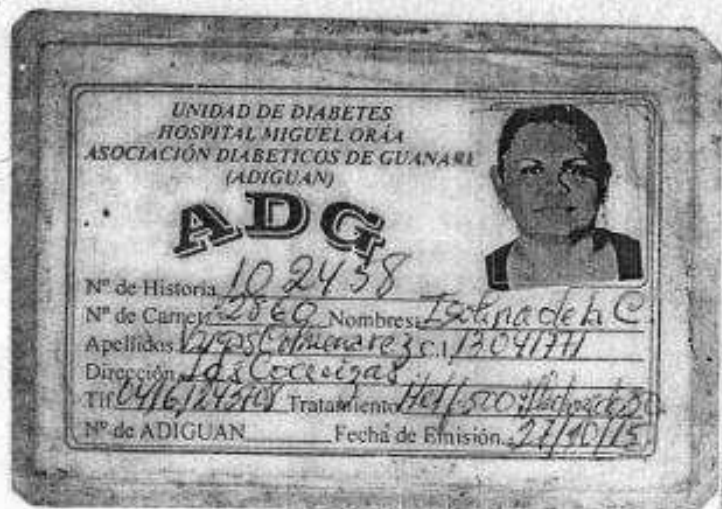 UNIDAD DE DIABETES
HOSPITAL MIGUEL ORÁA
ASOCIACIÓN DIABETICOS DE GUANARE
(ADIGUAN)
ADG
Nº de Historia 102438
Nº de Carnet: 2860 Nombres: Isolina de la C
Apellidos Colmenarez C.I. 13041771
Dirección Las Cocuizas
Tlf Tratamiento
Nº de ADIGUAN Fecha de Emisión. 27/10/15